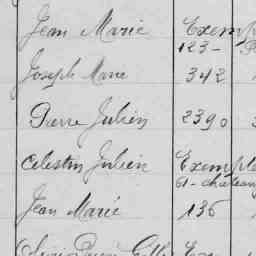 Jean Marie Exemp
123 -
Joseph Marie 342
Pierre Julien 2390
Celestin Julien Exempt
61 - chateau
Jean Marie 136